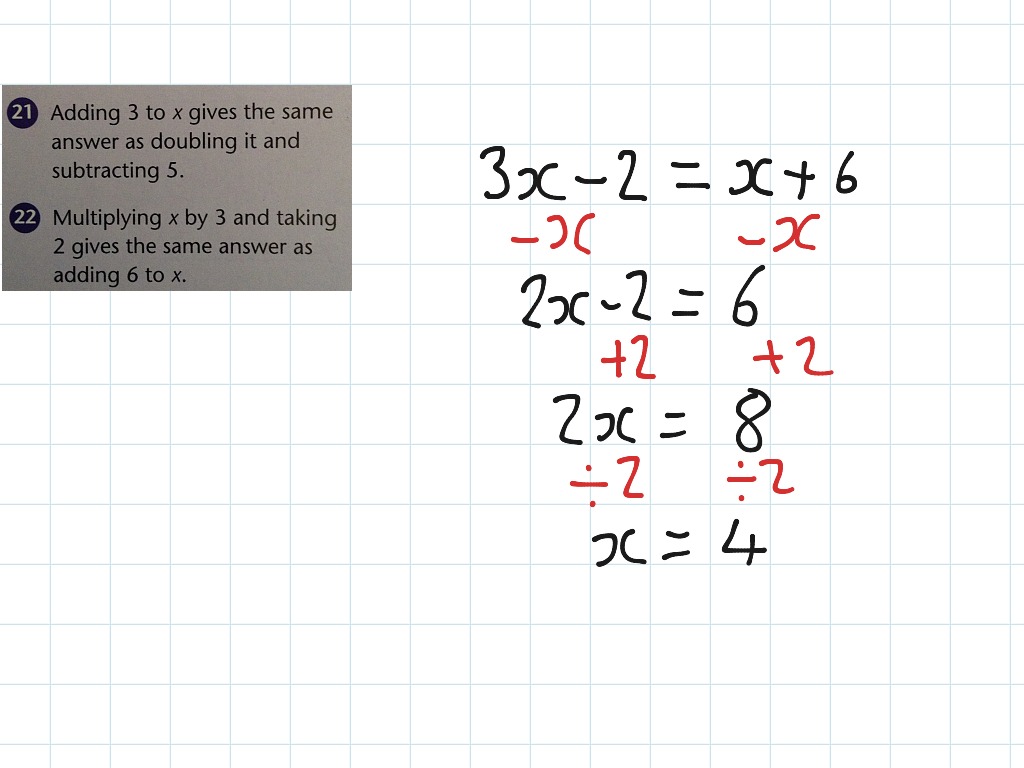 21 Adding 3 to x gives the same
answer as doubling it and
subtracting 5.
22 Multiplying x by 3 and taking
2 gives the same answer as
adding 6 to x.
3x - 2 = x + 6
-x -x
2x - 2 = 6
+2 +2
2x = 8
÷2 ÷2
x = 4